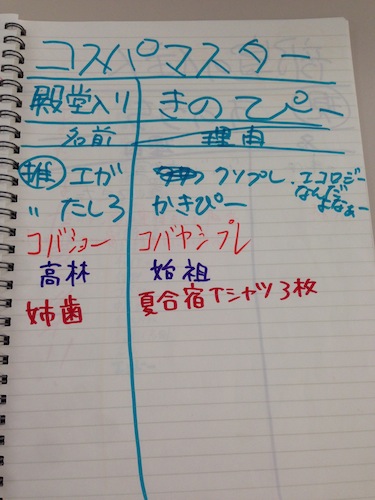 コスパマスター
殿堂入り きのてぴー
名前 理由
推 エガ クソプレ・エコロジー
なんだ
よなぁー
〃 たしろ かきぴー
コバショー コバヤシプレ
高林 始祖
姉歯 夏合宿Tシャツ3枚